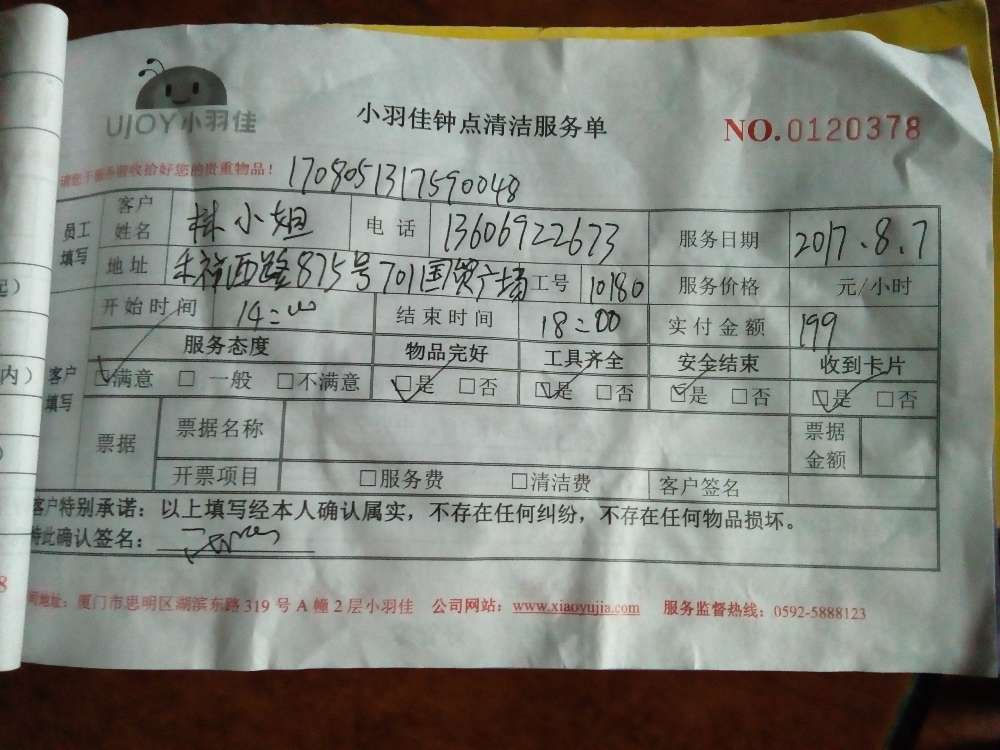 UJOY小羽佳
小羽佳钟点清洁服务单
NO.0120378
请您于服务前收拾好您的贵重物品！ 1708051317590048
员工填写 客户姓名 林小姐 电话 13606922673 服务日期 2017.8.7
地址 禾祥西路875号701国贸广场 工号 10180 服务价格 元/小时
开始时间 14:00 结束时间 18:00 实付金额 199
客户填写 服务态度 物品完好 工具齐全 安全结束 收到卡片
☑满意 □一般 □不满意 ☑是 □否 ☑是 □否 ☑是 □否 ☑是 □否
票据 票据名称 票据金额
开票项目 □服务费 □清洁费 客户签名
客户特别承诺：以上填写经本人确认属实，不存在任何纠纷，不存在任何物品损坏。
特此确认签名：
司地址：厦门市思明区湖滨东路319号A幢2层小羽佳 公司网站：www.xiaoyujia.com 服务监督热线：0592-5888123
内）